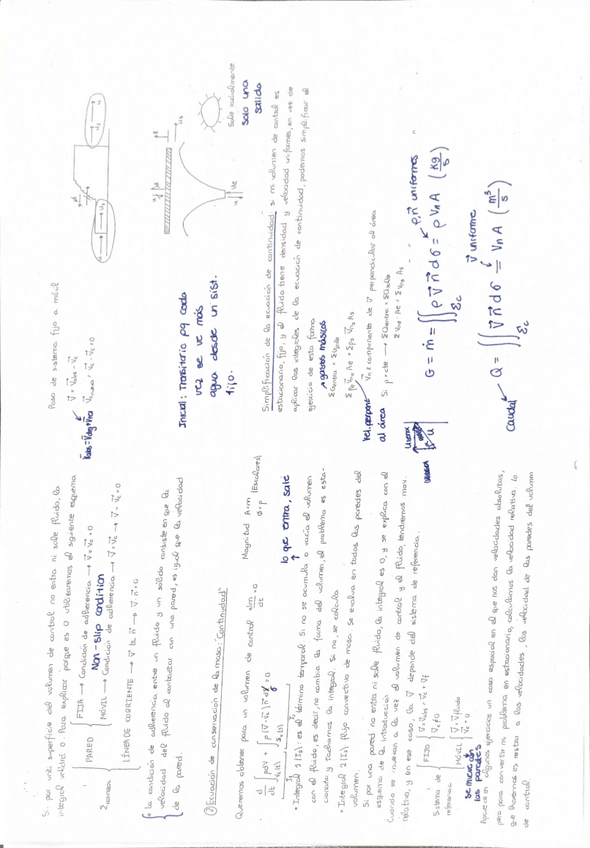 Si por una superficie del volumen de control no entra ni sale fluido, la
integral valdrá 0. Para explicar porque es 0 utilizaremos el siguiente esquema
PARED
FIJA → Condición de adherencia → V = Vc = 0
Non-slip condition
MÓVIL → Condición de adherencia → V = Vc → V - Vc = 0
LÍNEA DE CORRIENTE → V ⊥ n → V · n = 0
* la condición de adherencia entre un fluido y un sólido consiste en que la
velocidad del fluido al contactar con una pared, es igual que la velocidad
de la pared.
② Ecuación de conservación de la masa: "Continuidad"
Magnitud A = m (Escalares)
Queremos obtener para un volumen de control dm/dt = 0
lo que entra, sale
• Integral 1 (I1): es el término temporal. Si no se acumula o vacía el volumen
con el fluido, es decir, no cambia la forma del volumen, el problema es esta-
cionario y tachamos la integral. Si no, se calcula
• Integral 2 (I2): flujo convectivo de masa. Se evalúa en todas las paredes del
volumen.
Si por una pared no entra ni sale fluido, la integral es 0, y se explica con el
esquema de la introducción
Cuando se mueven a la vez el volumen de control y el fluido tendremos mov.
relativo, y en ese caso, la V depende del sistema de referencia.
Sistema de
referencia
FIJO
MÓVIL
se mueve con
las paredes
Aparece en algunos ejercicios un caso especial en el que nos dan velocidades absolutas,
pero para convertir mi problema en estacionario, calculamos la velocidad relativa. Lo
que haremos es restar a las velocidades, las velocidad de las paredes del volumen
de control.
Paso de sistema fijo a móvil
Inicial: Transitorio pq cada
vez se ve más
agua desde un sist.
fijo.
Sale radialmente
solo una
salida
Simplificación de la ecuación de continuidad: si mi volumen de control es
estacionario, fijo, y el fluido tiene densidad y velocidad uniformes, en vez de
aplicar las integrales de la ecuación de continuidad, podemos simplificar el
ejercicio de esta forma
gastos másicos
Vn ≡ componente de V perpendicular al área
Vel. perpend
al área
Si ρ = cte → ΣQentra = ΣQsale
ρ, n uniformes
G = ṁ = ∬Σc ρ V n dσ = ρ Vn A (kg/s)
V uniforme
Q = ∬Σc V n dσ = Vn A (m³/s)
Caudal